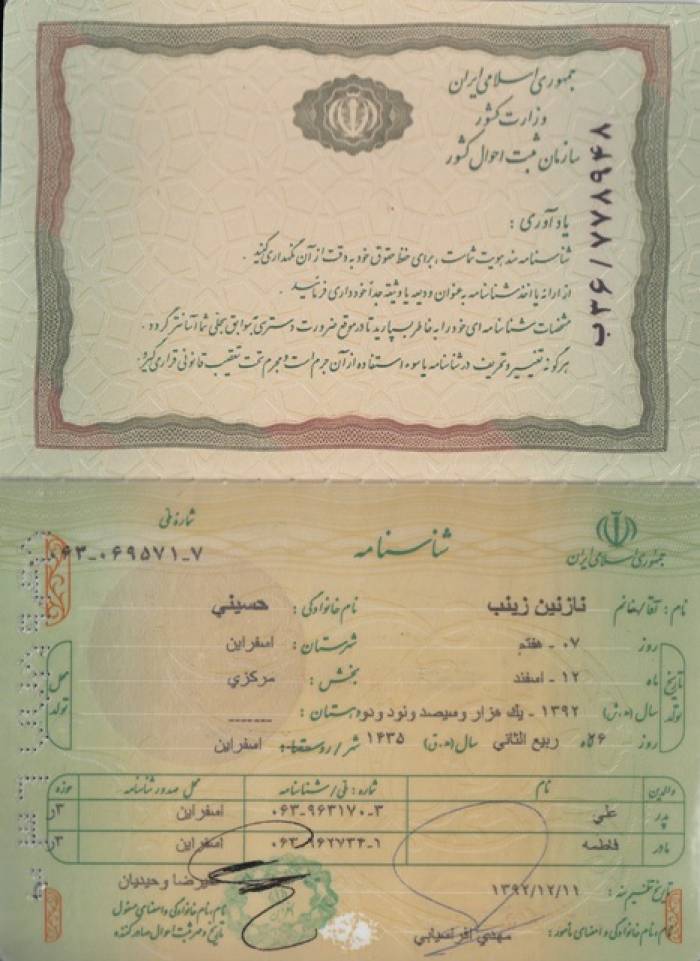 جمهوری اسلامی ایران
وزارت کشور
سازمان ثبت احوال کشور
ب۳۶/۷۷۸۹۴۸
یادآوری :
شناسنامه سند هویت شماست ، برای حفظ حقوق خود به دقت از آن نگهداری کنید .
از ارائه یا اخذ شناسنامه به عنوان ودیعه یا وثیقه جداً خودداری فرمائید .
مشخصات شناسنامه ای خود را به خاطر بسپارید تا در موقع ضرورت دسترسی به سوابق سجلی شما آسانتر گردد .
هرگونه تغییر و تحریف در شناسنامه یا سوء استفاده از آن جرم است و مجرم تحت تعقیب قانونی قرار می گیرد .
جمهوری اسلامی ایران
شناسنامه
شماره ملی
۰۶۳-۰۶۹۵۷۱-۷
نام : آقا/خانم نازنین زینب نام خانوادگی : حسیني
تاریخ تولد
روز ۰۷ - هفتم شهرستان : اسفراین
ماه ۱۲ - اسفند بخش : مرکزي
سال (ه.ش) ۱۳۹۲ - یك هزار وسیصد ونود ودو دهستان : ------
روز ۲۶ ماه ربیع الثاني سال (ه.ق) ۱۴۳۵ شهر/روستا : اسفراین
محل تولد
والدین نام شماره : ملی/شناسنامه محل صدور شناسنامه حوزه
پدر علي ۰۶۳-۹۶۳۱۷۰-۳ اسفراین ۳ر
مادر فاطمه ۰۶۳-۹۶۲۷۳۴-۱ اسفراین ۳ر
تاریخ تنظیم سند : ۱۳۹۲/۱۲/۱۱ علیرضا وحیدیان
نام، نام خانوادگی و امضای مأمور : مهدي افراسیابي
نام، نام خانوادگی و امضای مسئول
تاریخ و مهر ثبت احوال صادر کننده